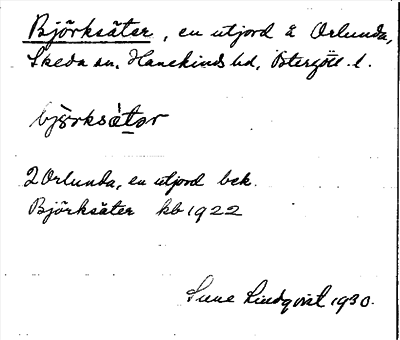 Björksäter, en utjord å Orlunda,
Skeda sn, Hanekinds hd, Östergötl. l.
björksätər
2 Orlunda, en utjord bek.
Björksäter kb 1922
Sune Lindqvist 1930.